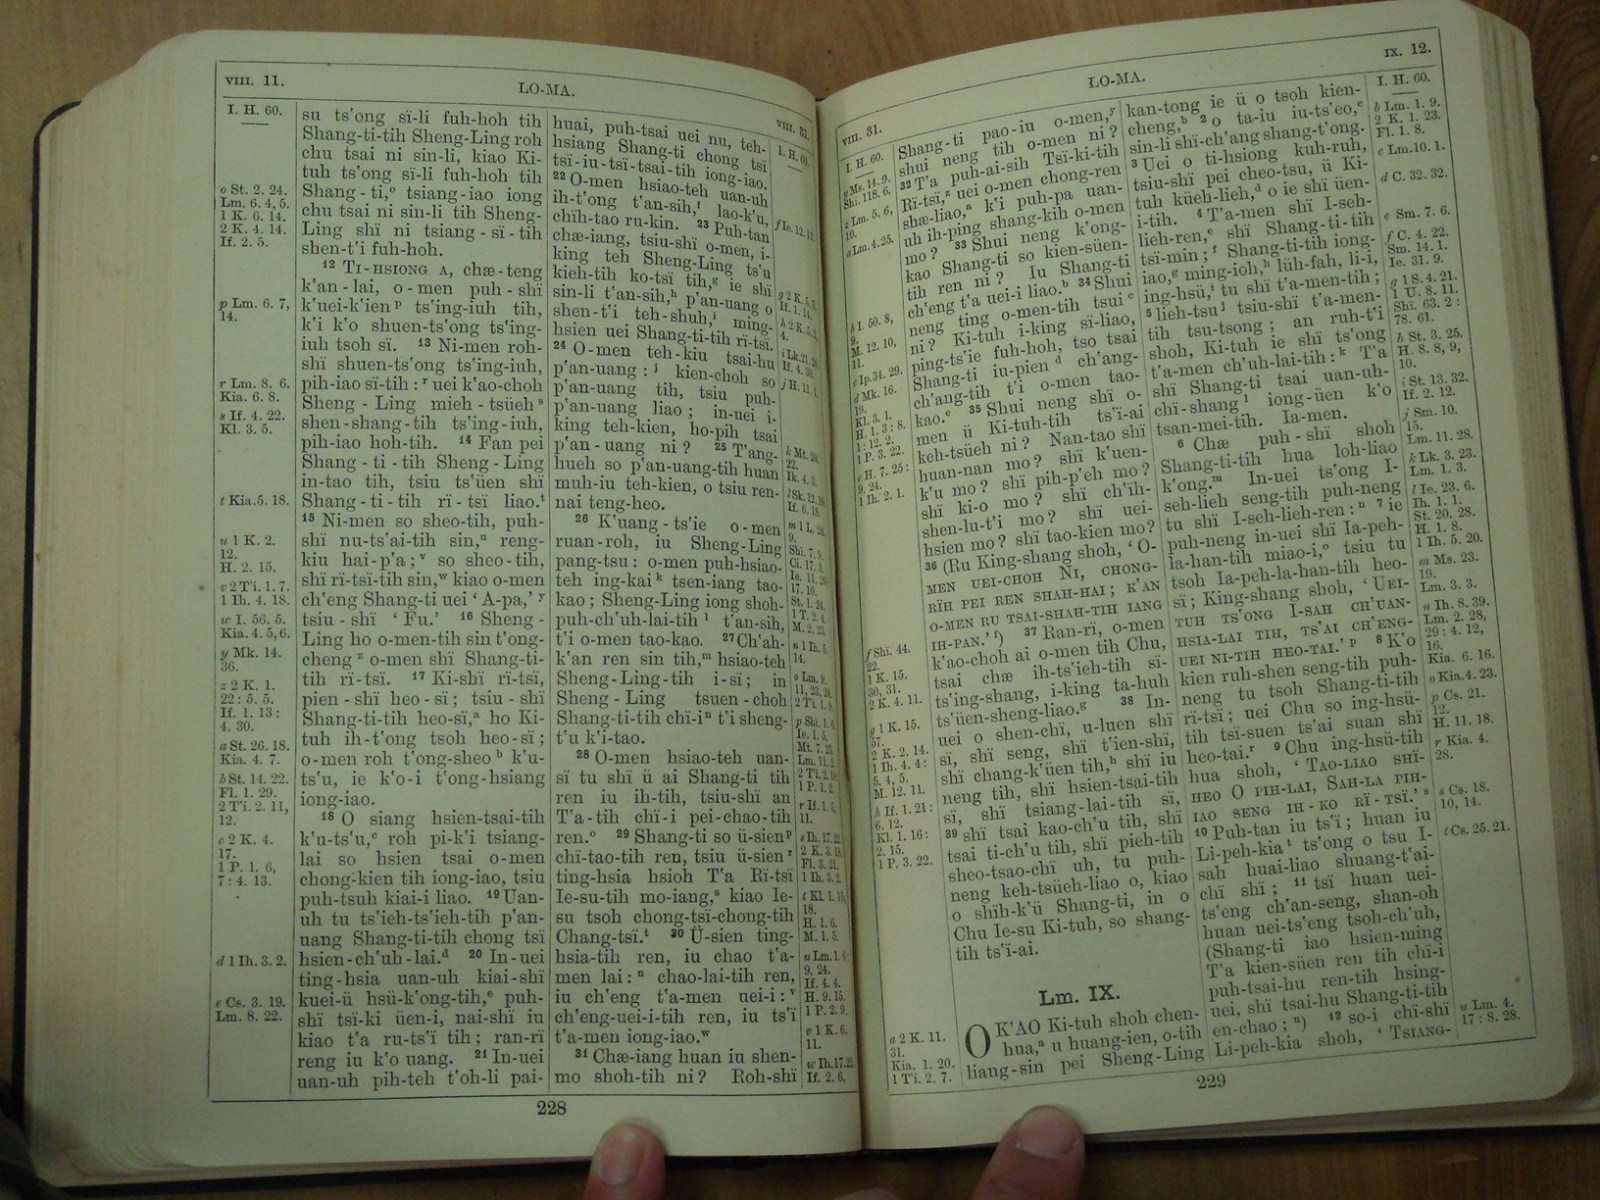 VIII. 11.
ŁO-MA.
VIII. 31.
I. H. 60.
o St. 2. 24.
Lm. 6. 4, 5.
1 K. 6. 14.
2 K. 4. 14.
If. 2. 5.
p Lm. 6. 7,
14.
r Lm. 8. 6.
Kia. 6. 8.
s If. 4. 22.
Kl. 3. 5.
t Kia. 5. 18.
u 1 K. 2.
12.
H. 2. 15.
v 2 Ti. 1. 7.
1 Ih. 4. 18.
w I. 56. 5.
Kia. 4. 5,6.
y Mk. 14.
36.
z 2 K. 1.
22: 5. 5.
If. 1. 13:
4. 30.
a St. 26. 18.
Kia. 4. 7.
b St. 14. 22.
Fl. 1. 29.
2 Ti. 2. 11,
12.
c 2 K. 4.
17.
1 P. 1. 6,
7: 4. 13.
d 1 Ih. 3. 2.
e Cs. 3. 19.
Lm. 8. 22.
su ts'ong sï-li fuh-hoh tih
Shang-ti-tih Sheng-Ling roh
chu tsai ni sin-li, kiao Ki-
tuh ts'ong sï-li fuh-hoh tih
Shang-ti,o tsiang-iao iong
chu tsai ni sin-li tih Sheng-
Ling shï ni tsiang-sï-tih
shen-t'i fuh-hoh.
12 TI-HSIONG A, chæ-teng
k'an-lai, o-men puh-shï
k'uei-k'ien p ts'ing-iuh tih,
k'i k'o shuen-ts'ong ts'ing-
iuh tsoh sï. 13 Ni-men roh-
shï shuen-ts'ong ts'ing-iuh,
pih-iao sï-tih : r uei k'ao-choh
Sheng-Ling mieh-tsüeh s
shen-shang-tih ts'ing-iuh,
pih-iao hoh-tih. 14 Fan pei
Shang-ti-tih Sheng-Ling
in-tao tih, tsiu ts'üen shï
Shang-ti-tih rï-tsï liao.t
15 Ni-men so sheo-tih, puh-
shï nu-ts'ai-tih sin,u reng-
kiu hai-p'a ; v so sheo-tih,
shï rï-tsï-tih sin,w kiao o-men
ch'eng Shang-ti uei 'A-pa,' y
tsiu-shï 'Fu.' 16 Sheng-
Ling ho o-men-tih sin t'ong-
cheng z o-men shï Shang-ti-
tih rï-tsï. 17 Ki-shï rï-tsï,
pien-shï heo-sï ; tsiu-shï
Shang-ti-tih heo-sï,a ho Ki-
tuh ih-t'ong tsoh heo-sï ;
o-men roh t'ong-sheo b k'u-
ts'u, ie k'o-i t'ong-hsiang
iong-iao.
18 O siang hsien-tsai-tih
k'u-ts'u,c roh pi-k'i tsiang-
lai so hsien tsai o-men
chong-kien tih iong-iao, tsiu
puh-tsuh kiai-i liao. 19 Uan-
uh tu ts'ieh-ts'ieh-tih p'an-
uang Shang-ti-tih chong tsï
hsien-ch'uh-lai.d 20 In-uei
ting-hsia uan-uh kiai-shï
kuei-ü hsü-k'ong-tih,e puh-
shï tsï-ki üen-i, nai-shï iu
kiao t'a ru-ts'ï tih ; ran-rï
reng iu k'o uang. 21 In-uei
uan-uh pih-teh t'oh-li pai-
huai, puh-tsai uei nu, teh-
hsiang Shang-ti chong tsï
tsï-iu-tsï-tsai-tih iong-iao.
22 O-men hsiao-teh uan-uh
ih-t'ong t'an-sih,f lao-k'u,
chïh-tao ru-kin. 23 Puh-tan
chæ-iang, tsiu-shï o-men, i-
king teh Sheng-Ling ts'u
kieh-tih ko-tsï tih,g ie shï
sin-li t'an-sih,h p'an-uang o
shen-t'i teh-shuh,i ming-
hsien uei Shang-ti-tih rï-tsï.
24 O-men teh-kiu tsai-hu
p'an-uang : j kien-choh so
p'an-uang tih, tsiu puh-
p'an-uang liao ; in-uei i-
king teh-kien, ho-pih tsai
p'an-uang ni ? 25 T'ang-
hueh so p'an-uang-tih huan
muh-iu teh-kien, o tsiu ren-
nai teng-heo.
26 K'uang-ts'ie o-men
ruan-roh, iu Sheng-Ling
pang-tsu : o-men puh-hsiao-
teh ing-kai k tsen-iang tao-
kao ; Sheng-Ling iong shoh-
puh-ch'uh-lai-tih l t'an-sih,
t'i o-men tao-kao. 27 Ch'ah-
k'an ren sin tih,m hsiao-teh
Sheng-Ling-tih i-sï ; in
Sheng-Ling tsuen-choh
Shang-ti-tih chï-i n t'i sheng-
t'u k'i-tao.
28 O-men hsiao-teh uan-
sï tu shï ü ai Shang-ti tih
ren iu ih-tih, tsiu-shï an
T'a-tih chï-i pei-chao-tih
ren.o 29 Shang-ti so ü-sien p
chï-tao-tih ren, tsiu ü-sien r
ting-hsia hsioh T'a Rï-tsï
Ie-su-tih mo-iang,s kiao Ie-
su tsoh chong-tsï-chong-tih
Chang-tsï.t 30 Ü-sien ting-
hsia-tih ren, iu chao t'a-
men lai : u chao-lai-tih ren,
iu ch'eng t'a-men uei-i : v
ch'eng-uei-i-tih ren, iu ts'ï
t'a-men iong-iao.w
31 Chæ-iang huan iu shen-
mo shoh-tih ni ? Roh-shï
I. H. 60.
f Ie. 12. 11.
g 2 K. 5. 5.
If. 1. 14.
h 2 K. 5. 2,
4.
i Lk. 21. 28.
If. 4. 30.
j H. 11. 1.
k Mt. 20.
22.
Ik. 4. 3.
l Sk. 12. 10.
If. 6. 18.
m 1 L. 28.
9.
Shï. 7. 9.
Ci. 17. 3.
Ie. 11. 20:
17. 10.
St. 1. 24.
1 T. 2. 4.
M. 2. 23.
n 1 Ih. 5.
14.
o Lm. 9.
11, 23, 24.
2 Ti. 1. 9.
p Shï. 1. 6.
Ie. 1. 5.
Mt. 7. 23.
Lm. 11. 2.
2 Ti. 2. 19.
1 P. 1. 2.
r If. 1. 5,
11.
s Ih. 17. 22.
2 K. 3. 18.
Fl. 3. 21.
1 Ih. 3. 2.
t Kl. 1. 15,
18.
H. 1. 6.
M. 1. 5.
u Lm. 1. 6:
9. 24.
If. 4. 4.
H. 9. 15.
1 P. 2. 9.
v 1 K. 6.
11.
w Ih. 17. 22.
If. 2. 6.
228
VIII. 31.
ŁO-MA.
IX. 12.
I. H. 60.
y Ms. 14. 9.
Shï. 118. 6.
z Lm. 5. 6,
10.
a Lm. 4. 25.
b I. 50. 8,
9.
M. 12. 10,
11.
c Ip. 34. 29.
d Mk. 16.
19.
Kl. 3. 1.
H. 1. 3: 8.
1: 12. 2.
1 P. 3. 22.
e H. 7. 25:
9. 24.
1 Ih. 2. 1.
f Shï. 44.
22.
1 K. 15.
30, 31.
2 K. 4. 11.
g 1 K. 15.
57.
2 K. 2. 14.
1 Ih. 4. 4:
5. 4, 5.
M. 12. 11.
h If. 1. 21:
6. 12.
Kl. 1. 16:
2. 15.
1 P. 3. 22.
a 2 K. 11.
31.
Kia. 1. 20.
1 Ti. 2. 7.
Shang-ti pao-iu o-men,y
shui neng tih o-men ni ?
32 T'a puh-ai-sih Tsï-ki-tih
Rï-tsï,z uei o-men chong-ren
shæ-liao,a k'i puh-pa uan-
uh ih-ping shang-kih o-men
mo ? 33 Shui neng k'ong-
kao Shang-ti so kien-süen-
tih ren ni ? Iu Shang-ti
ch'eng t'a uei-i liao.b 34 Shui
neng ting o-men-tih tsui c
ni ? Ki-tuh i-king sï-liao,
ping-ts'ie fuh-hoh, tso tsai
Shang-ti iu-pien d ch'ang-
ch'ang-tih t'i o-men tao-
kao.e 35 Shui neng shï o-
men ü Ki-tuh-tih ts'ï-ai
keh-tsüeh ni ? Nan-tao shï
huan-nan mo ? shï k'uen-
k'u mo ? shï pih-p'eh mo ?
shï ki-o mo ? shï ch'ïh-
shen-lu-t'i mo ? shï uei-
hsien mo ? shï tao-kien mo ?
36 (Ru King-shang shoh, 'O-
MEN UEI-CHOH NI, CHONG-
RÏH PEI REN SHAH-HAI ; K'AN
O-MEN RU TSAI-SHAH-TIH IANG
IH-PAN.' f) 37 Ran-rï, o-men
k'ao-choh ai o-men tih Chu,
tsai chæ ih-ts'ieh-tih sï-
ts'ing-shang, i-king ta-huh
ts'üen-sheng-liao.g 38 In-
uei o shen-chï, u-luen shï
sï, shï seng, shï t'ien-shï,
shï chang-k'üen tih,h shï iu
neng tih, shï hsien-tsai-tih
sï, shï tsiang-lai-tih sï,
39 shï tsai kao-ch'u tih, shï
tsai ti-ch'u tih, shï pieh-tih
sheo-tsao-chï uh, tu puh-
neng keh-tsüeh-liao o, kiao
o shïh-k'ü Shang-ti, in o
Chu Ie-su Ki-tuh, so shang-
tih ts'ï-ai.
Lm. IX.
O K'AO Ki-tuh shoh chen-
hua,a u huang-ien, o-tih
liang-sin pei Sheng-Ling
kan-tong ie ü o tsoh kien-
cheng,b 2 o ta-iu iu-ts'eo,c
sin-li shï-ch'ang shang-t'ong.
3 Uei o ti-hsiong kuh-ruh,
tsiu-shï pei cheo-tsu, ü Ki-
tuh küeh-lieh,d o ie shï üen-
i-tih. 4 T'a-men shï I-seh-
lieh-ren,e shï Shang-ti-tih
tsï-min ; f Shang-ti-tih iong-
iao,g ming-ioh,h lüh-fah, li-i,
ing-hsü,i tu shï t'a-men-tih ;
5 lieh-tsu j tsiu-shï t'a-men-
tih tsu-tsong ; an ruh-t'i
shoh, Ki-tuh ie shï ts'ong
t'a-men ch'uh-lai-tih : k T'a
shï Shang-ti tsai uan-uh-
chï-shang l iong-üen k'o
tsan-mei-tih. Ia-men.
6 Chæ puh-shï shoh
Shang-ti-tih hua loh-liao
k'ong.m In-uei ts'ong I-
seh-lieh seng-tih puh-neng
tu shï I-seh-lieh-ren : n 7 ie
puh-neng in-uei shï Ia-peh-
la-han-tih miao-i,o tsiu tu
tsoh Ia-peh-la-han-tih heo-
sï ; King-shang shoh, 'UEI-
TUH TS'ONG I-SAH CH'UAN-
HSIA-LAI TIH, TS'AI CH'ENG-
UEI NI-TIH HEO-TAI.' p 8 K'o
kien ruh-shen seng-tih puh-
neng tu tsoh Shang-ti-tih
rï-tsï ; uei Chu so ing-hsü-
tih tsï-suen ts'ai suan shï
heo-tai.r 9 Chu ing-hsü-tih
hua shoh, 'TAO-LIAO SHÏ-
HEO O PIH-LAI, SAH-LA PIH-
IAO SENG IH-KO RÏ-TSÏ.' s
10 Puh-tan iu ts'ï ; huan iu
Li-peh-kia t ts'ong o tsu I-
sah huai-liao shuang-t'ai-
chï shï ; 11 tsï huan uei-
ts'eng ch'an-seng, shan-oh
huan uei-ts'eng tsoh-ch'uh,
(Shang-ti iao hsien-ming
T'a kien-süen ren tih chï-i
puh-tsai-hu ren-tih hsing-
uei, shï tsai-hu Shang-ti-tih
en-chao ; u) 12 so-i chï-shï
Li-peh-kia shoh, 'TSIANG-
I. H. 60.
b Lm. 1. 9.
2 K. 1. 23.
Fl. 1. 8.
c Lm. 10. 1.
d C. 32. 32.
e Sm. 7. 6.
f C. 4. 22.
Sm. 14. 1.
Ie. 31. 9.
g 1 S. 4. 21.
1 U. 8. 11.
Shï. 63. 2:
78. 61.
h St. 3. 25.
H. 8. 8, 9,
10.
i St. 13. 32.
If. 2. 12.
j Sm. 10.
15.
Lm. 11. 28.
k Lk. 3. 23.
Lm. 1. 3.
l Ie. 23. 6.
Ih. 1. 1.
St. 20. 28.
H. 1. 8.
1 Ih. 5. 20.
m Ms. 23.
19.
Lm. 3. 3.
n Ih. 8. 39.
Lm. 2. 28,
29: 4. 12,
16.
Kia. 6. 16.
o Kia. 4. 23.
p Cs. 21.
12.
H. 11. 18.
r Kia. 4.
28.
s Cs. 18.
10, 14.
t Cs. 25. 21.
u Lm. 4.
17: 8. 28.
229